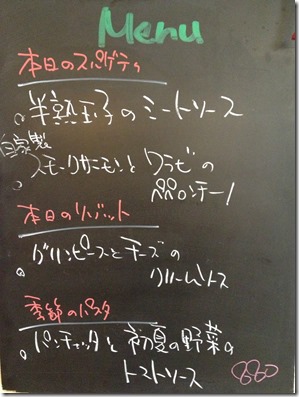 Menu
本日のスパゲティ
半熟玉子のミートソース
自家製
スモークサーモンとワラビの
ペペロンチーノ
本日のリゾット
グリンピースとチーズの
クリームソース
季節のパスタ
パンチェッタと初夏の野菜の
トマトソース